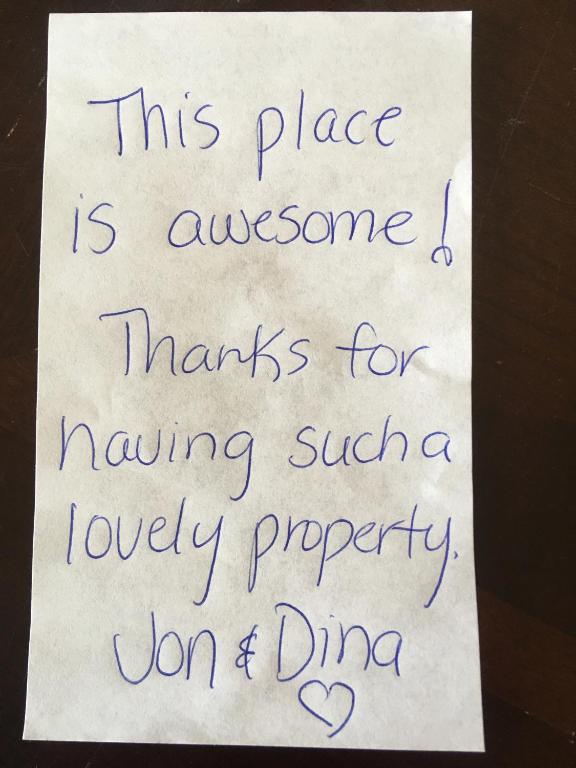 This place
is awesome!
Thanks for
having such a
lovely property.
Jon & Dina